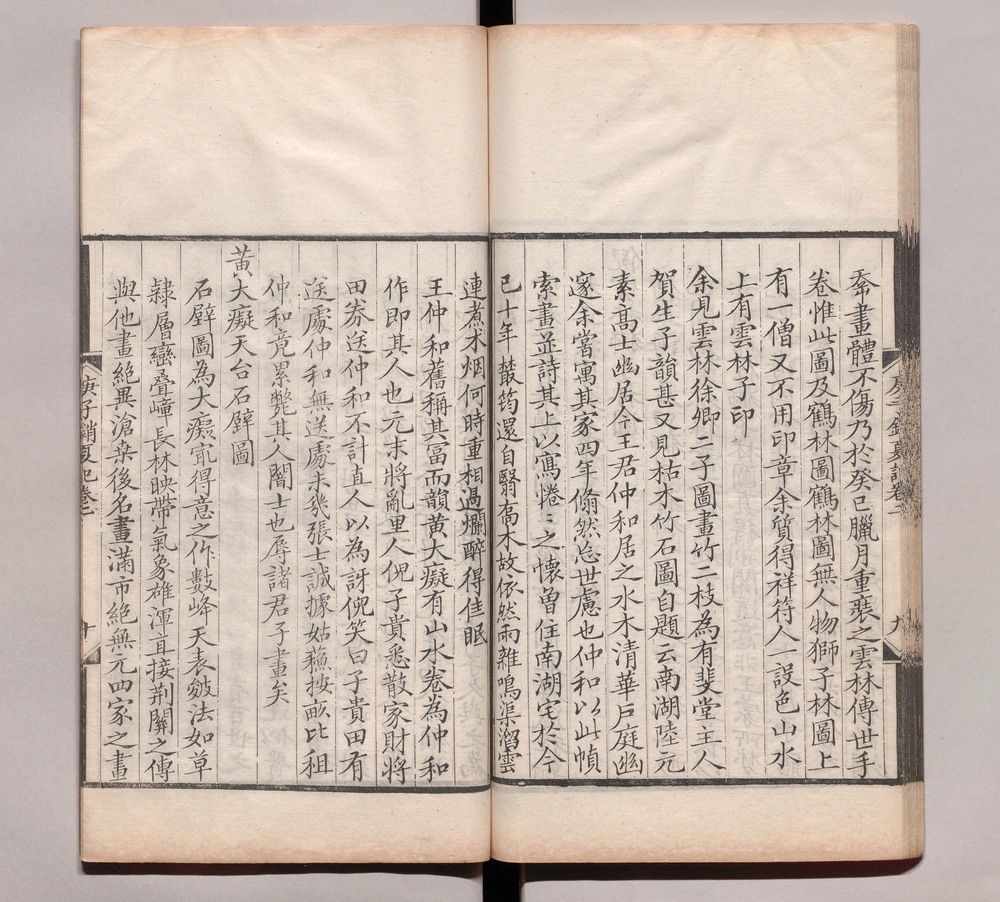 黍畫體不傷乃於癸巳臘月重裝之雲林傳世手
卷惟此圖及鶴林圖鶴林圖無人物獅子林圖上
有一僧又不用印章余質得祥符人一設色山水
上有雲林子印
余見雲林徐卿二子圖畫竹二枝為有斐堂主人
賀生子韻甚又見枯木竹石圖自題云南湖陸元
素高士幽居今王君仲和居之水木清華戶庭幽
邃余嘗寓其家四年翛然忘世慮也仲和以此幀
索畫並詩其上以寓惓〻之懷曾住南湖宅於今
已十年叢筠還自翳喬木故依然雨雜鳴渠溜雲
連煮朮烟何時重相過爛醉得佳眠
王仲和舊稱其富而韻黃大癡有山水卷為仲和
作即其人也元末將亂里人倪子貴悉散家財將
田券送仲和不計直人以為訝倪笑曰子貴田有
送處仲和無送處未幾張士誠據姑蘇按畝比租
仲和竟累斃其人闇士也辱諸君子畫矣
黃大癡天台石壁圖
石壁圖為大癡㝡得意之作數峰天表皴法如草
隸層巒叠嶂長林映帶氣象雄渾直接荊關之傳
與他畫絕異滄桑後名畫滿市絕無元四家之畫
庚子銷夏記卷二
九
庚子銷夏記卷二
十